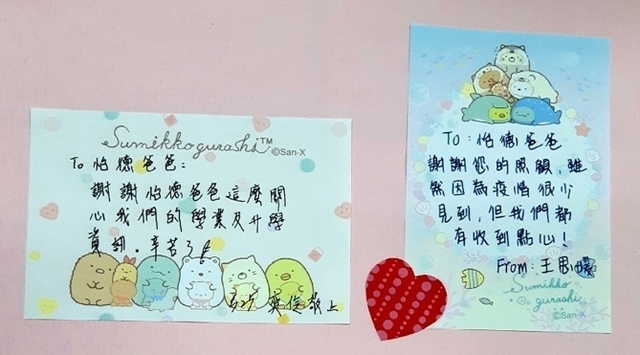 Sumikkogurashi™
©San-X
To 怡德爸爸:
謝謝怡德爸爸這麼關
心我們的學業及升學
資訊.辛苦了!!
敬上
To:怡德爸爸
謝謝您的照顧,雖
然因為疫情很少
見到,但我們都
有收到點心!
From:王思
Sumikko
gurashi
©San-X